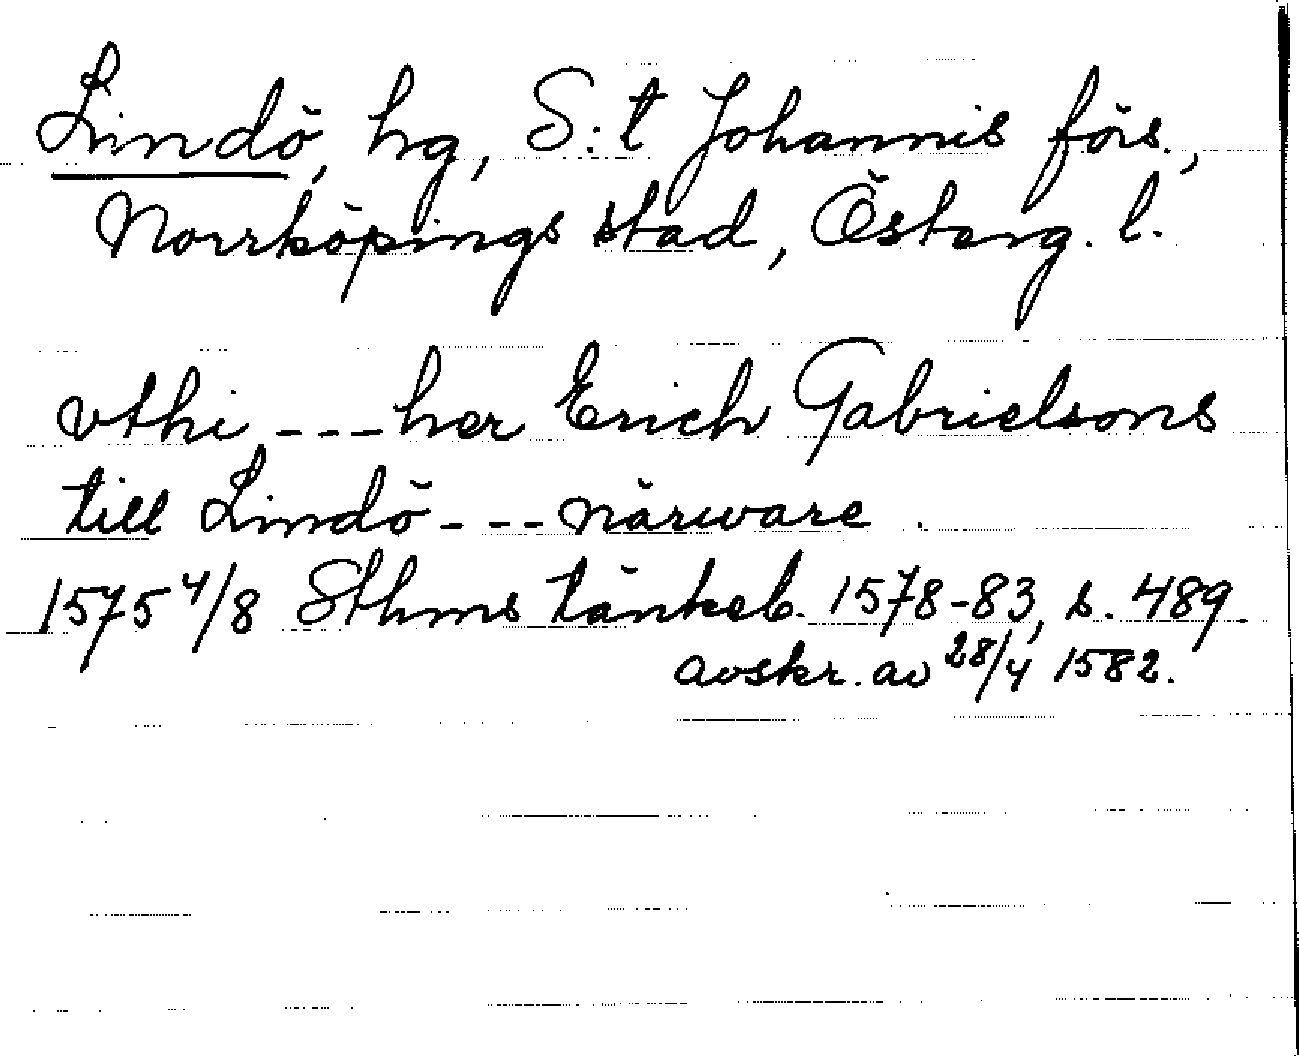 Lindö, hg, S:t Johannis förs.,
Norrköpings stad, Österg. l.
vthi, --- her Erich Gabrielsons
till Lindö --- närware
1575 4/8 Sthms tänkeb. 1578-83, s. 489.
avskr. av 28/4 1582.